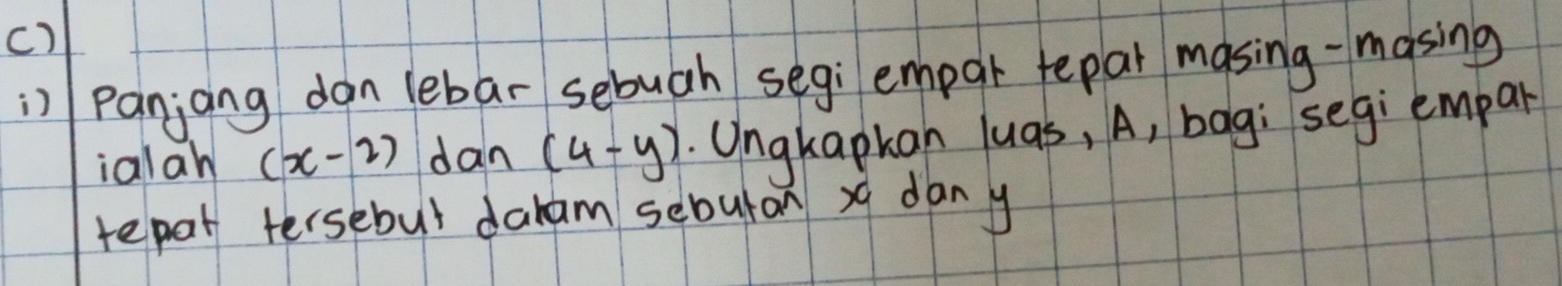 c)
i) Panjang dan lebar sebuah segi empat tepat masing-masing
ialah (x-2) dan (4-y). Ungkapkan luas, A, bagi segi empat
tepat tersebut dalam sebutan x dan y